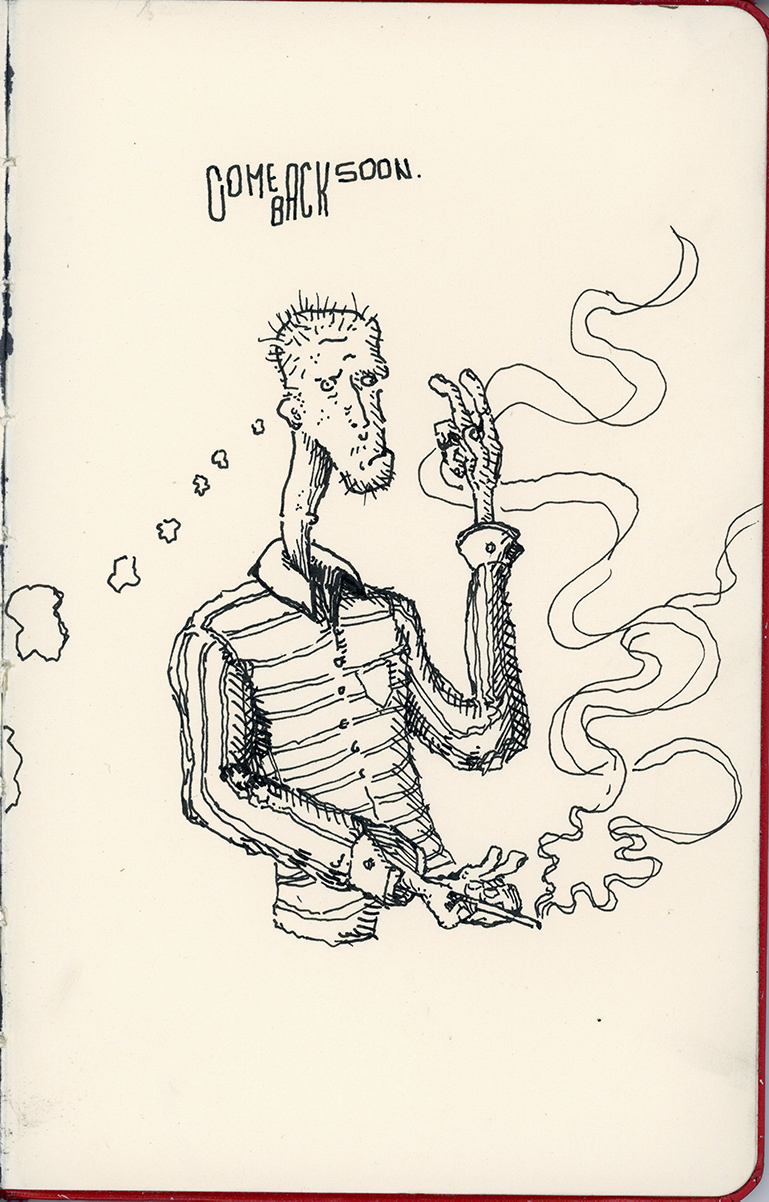 COME BACK SOON.